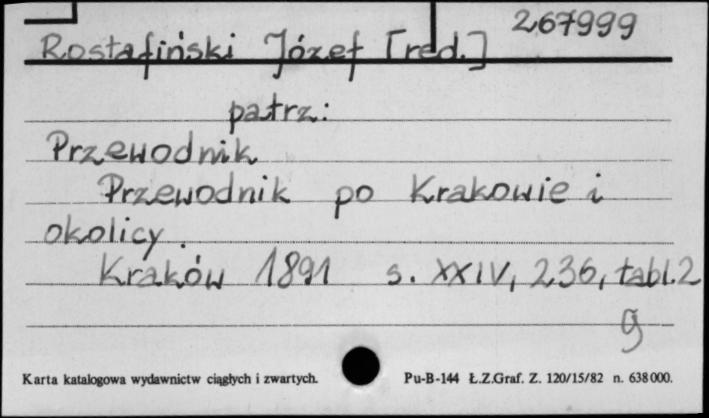 267999
Rostafiński Józef [red.]
patrz:
Przewodnik
Przewodnik po Krakowie i
okolicy.
Kraków 1891 s. XXIV, 236, tabl. 2
g
Karta katalogowa wydawnictw ciągłych i zwartych. Pu-B-144 Ł.Z.Graf. Z. 120/15/82 n. 638000.